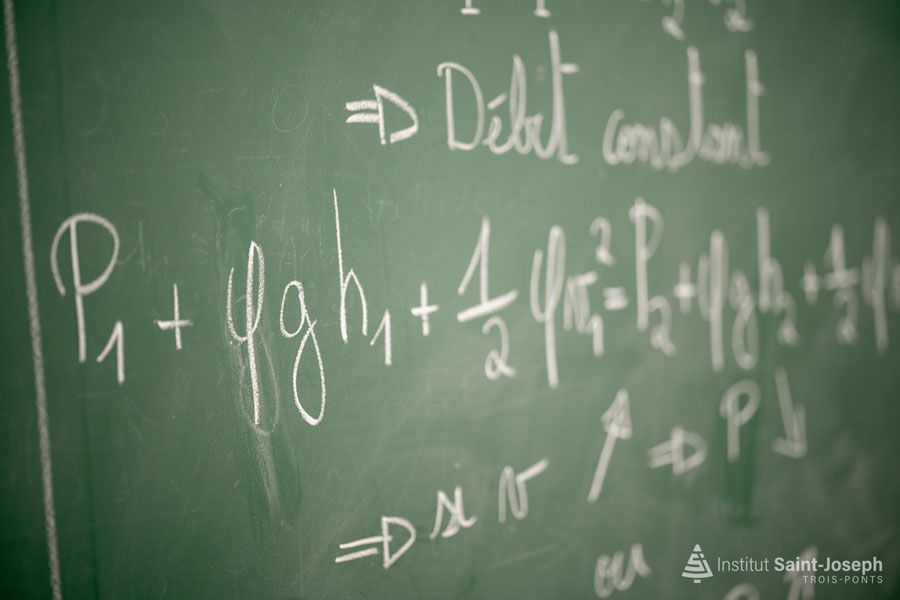 ⇒ Débit constant
P₁ + φgh₁ + ½ φv₁² = P₂ + φgh₂ + ½ φ
⇒ si v ↑ ⇒ P ↓
ou
Institut Saint-Joseph
TROIS-PONTS